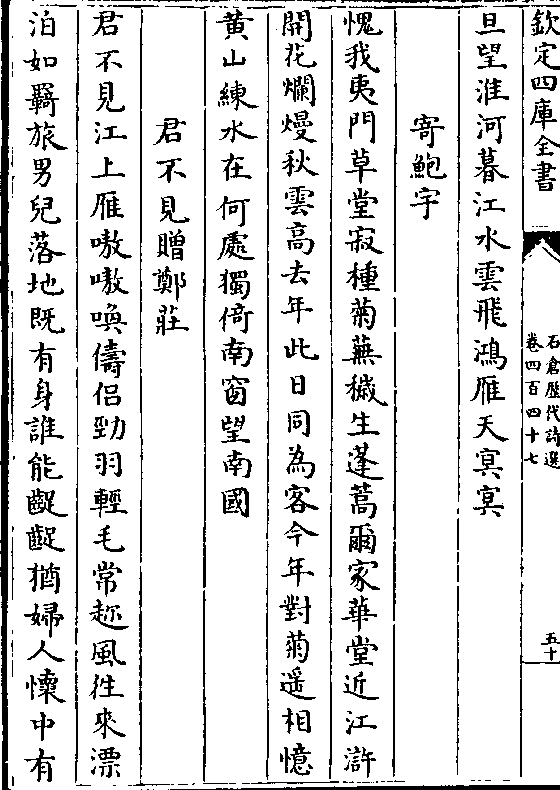 欽定四庫全書
石倉歷代詩選
卷四百四十七
五十
旦望淮河暮江水雲飛鴻雁天冥冥
寄鮑宇
愧我夷門草堂寂種菊蕪穢生蓬蒿爾家華堂近江滸
開花爛熳秋雲高去年此日同為客今年對菊遥相憶
黄山練水在何處獨倚南窗望南國
君不見贈鄭莊
君不見江上雁嗷嗷喚儔侣勁羽輕毛常趂風徃來漂
泊如羇旅男兒落地既有身誰能齪齪猶婦人懐中有